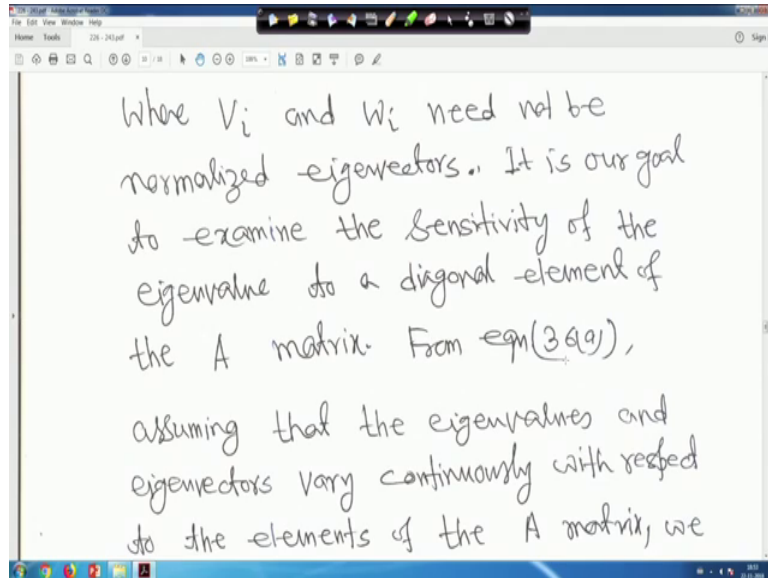 226 - 243.pdf - Adobe Acrobat Reader DC
File Edit View Window Help
Home Tools 226 - 243.pdf × Sign
where Vi and Wi need not be
normalized eigenvectors. It is our goal
to examine the sensitivity of the
eigenvalue to a diagonal element of
the A matrix. From eqn(36(a)),
assuming that the eigenvalues and
eigenvectors vary continuously with respect
to the elements of the A matrix, we